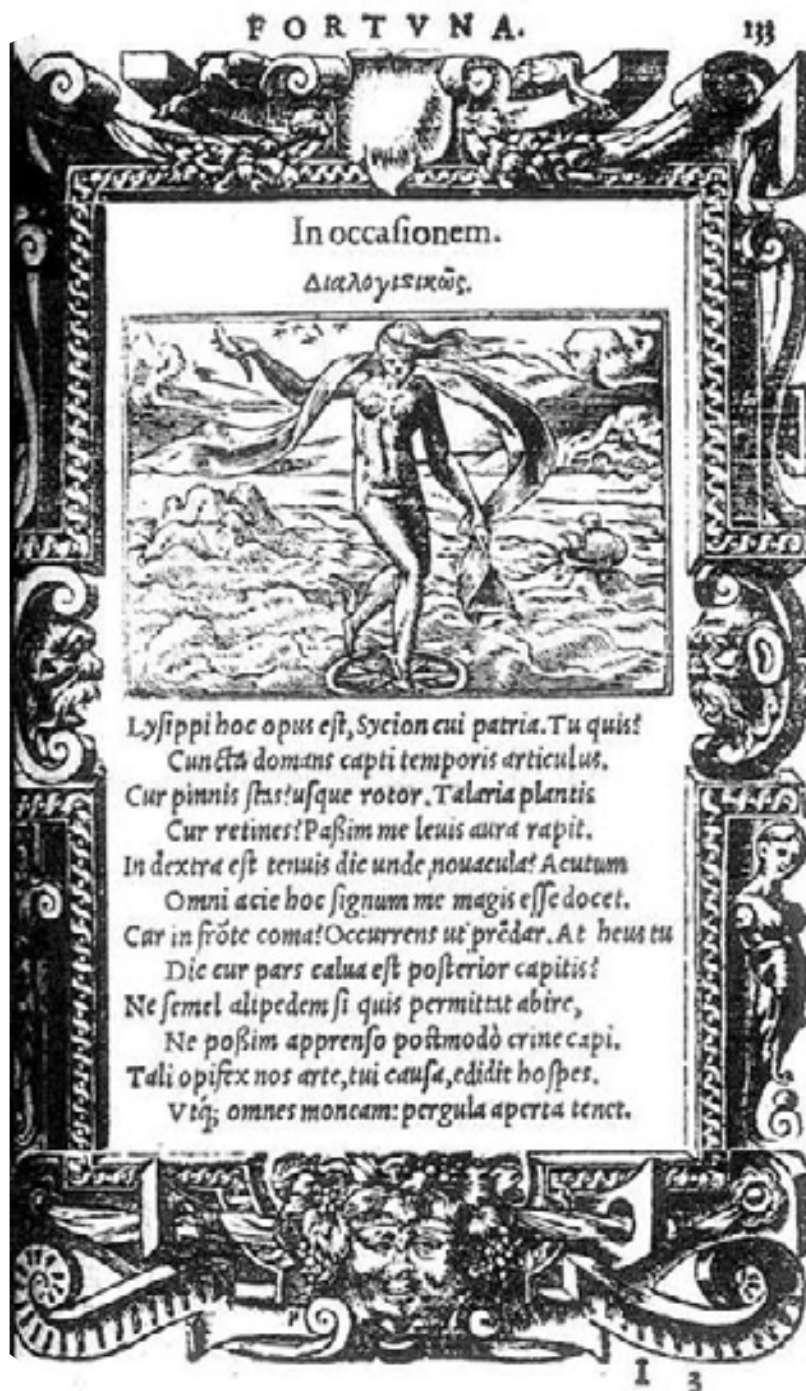 FORTVNA. 133
In occaſionem.
Διαλογιςικῶς.
Lyſippi hoc opus eſt, Sycion cui patria. Tu quis?
Cuncta domans capti temporis articulus.
Cur pinnis ſtas? uſque rotor. Talaria plantis
Cur retines? Paßim me leuis aura rapit.
In dextra eſt tenuis dic unde nouacula? Acutum
Omni acie hoc ſignum me magis eſſe docet.
Cur in frōte coma? Occurrens ut prēdar. At heus tu
Dic cur pars calua eſt poſterior capitis?
Ne ſemel alipedem ſi quis permittat abire,
Ne poßim apprenſo poſtmodò crine capi.
Tali opifex nos arte, tui cauſa, edidit hoſpes.
Vtq́; omnes moneam: pergula aperta tenet.
I 3